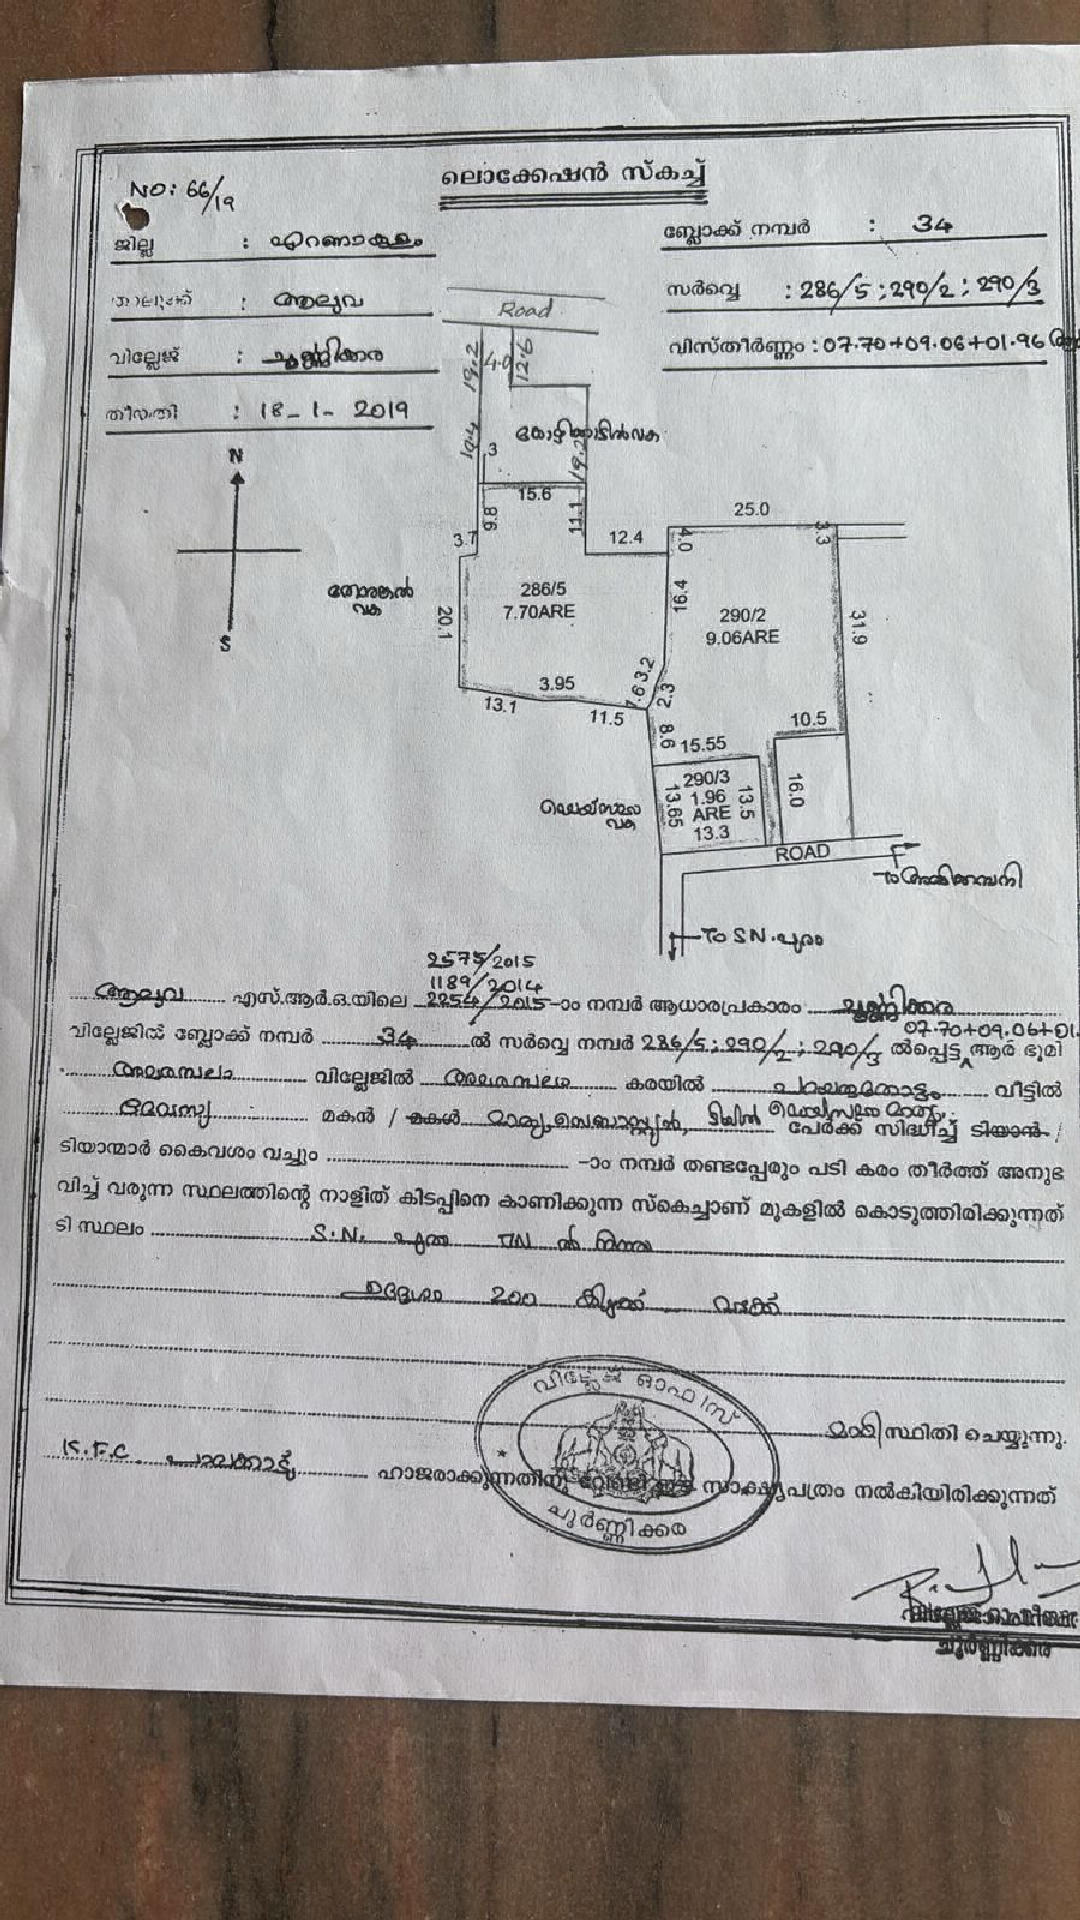 ലൊക്കേഷൻ സ്കെച്ച്
NO: 66/19
ജില്ല : എറണാകുളം
ബ്ലോക്ക് നമ്പർ : 34
താലൂക്ക് : ആലുവ
സർവ്വെ : 286/5 ; 290/2 ; 290/3
വില്ലേജ് : ചൂർണ്ണിക്കര
വിസ്തീർണ്ണം : 07.70+09.06+01.96
തീയതി : 18-1-2019
Road
19.2
4.0
12.6
10.4
3
19.2
15.6
N
S
9.8
11.1
3.7
12.4
25.0
4.0
3.3
വക
20.1
286/5
7.70ARE
16.4
290/2
9.06ARE
31.9
3.95
13.1
11.5
3.2
2.3
8.6
15.55
10.5
290/3
1.96
ARE
13.3
13.65
13.5
16.0
വക
ROAD
TO S.N.പുരം
2575/2015
1189/2014
ആലുവ എസ്.ആർ.ഒ.യിലെ 2254/2015-ാം നമ്പർ ആധാരപ്രകാരം ചൂർണ്ണിക്കര
07.70+09.06+01.
വില്ലേജിൽ ബ്ലോക്ക് നമ്പർ 34 ൽ സർവ്വെ നമ്പർ 286/5 ; 290/2 ; 290/3 ൽപ്പെട്ട ആർ ഭൂമി
വില്ലേജിൽ കരയിൽ വീട്ടിൽ
ദേവസ്സി മകൻ / മകൾ പേർക്ക് സിദ്ധിച്ച് ടിയാൻ /
ടിയാന്മാർ കൈവശം വച്ചും -ാം നമ്പർ തണ്ടപ്പേരും പടി കരം തീർത്ത് അനുഭ
വിച്ച് വരുന്ന സ്ഥലത്തിന്റെ നാളിത് കിടപ്പിനെ കാണിക്കുന്ന സ്കെച്ചാണ് മുകളിൽ കൊടുത്തിരിക്കുന്നത്
ടി സ്ഥലം S.N. പുരം ൽ നിന്നും
ഉദ്ദേശം 200 വടക്ക്
മാറി സ്ഥിതി ചെയ്യുന്നു.
K.F.C. പാലക്കാട്ട് ഹാജരാക്കുന്നതിനു വേണ്ടി ഈ സാക്ഷ്യപത്രം നൽകിയിരിക്കുന്നത്
വില്ലേജ് ഓഫീസ്
ചൂർണ്ണിക്കര
വില്ലേജ് ഓഫീസർ
ചൂർണ്ണിക്കര